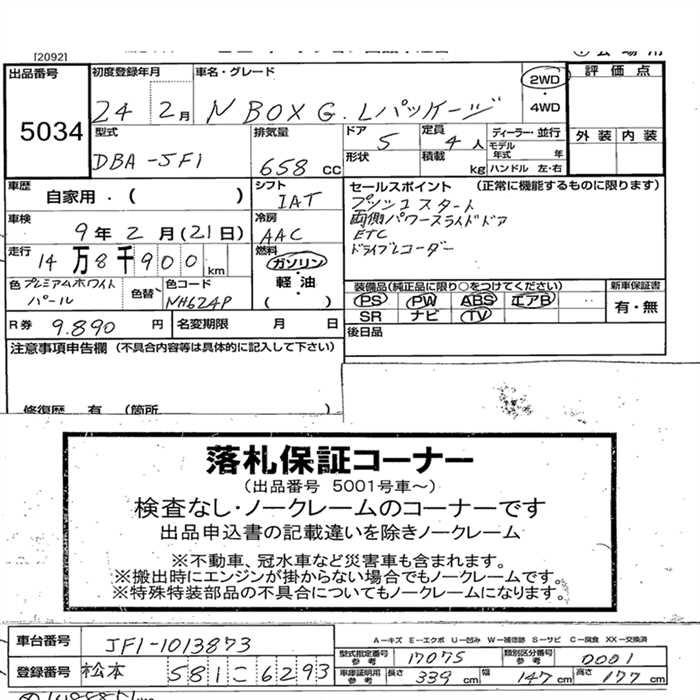 [2092]
出品番号 初度登録年月 車名・グレード 2WD 評価点
5034 24 2月 N BOX G.Lパッケージ ・ 4WD
型式 排気量 ドア 5 定員 4人 ディーラー・並行 外装 内装
DBA-JF1 658 cc 形状 積載 kg モデル年式 年 ハンドル 左・右
車歴 自家用・( ) シフト IAT セールスポイント (正常に機能するものに限ります)
プッシュスタート
車検 9年2月(21日) 冷房 AAC 両側パワースライドドア
ETC
走行 14万8千900km 燃料 ガソリン・軽油・( ) ドライブレコーダー
色 プレミアムホワイトパール 色替 色コード NH624P
装備品(純正品に限り○をつけてください) 新車保証書
PS PW ABS エアB 有・無
SR ナビ TV
R券 9.890円 名変期限 月 日 後日品
注意事項申告欄 (不具合内容等は具体的に記入して下さい)
修復歴 有 (箇所
落札保証コーナー
(出品番号 5001号車〜)
検査なし・ノークレームのコーナーです
出品申込書の記載違いを除きノークレーム
※不動車、冠水車など災害車も含まれます。
※搬出時にエンジンが掛からない場合でもノークレームです。
※特殊特装部品の不具合についてもノークレームになります。
A−キズ E−エクボ U−凹み W−補修跡 S−サビ C−腐食 XX−交換済
車台番号 JF1-1013873 型式指定番号参考 17075 類別区分番号参考 0001
登録番号 松本 581こ6293 車庫証明用参考 長さ 339cm 幅 147cm 高さ 177cm